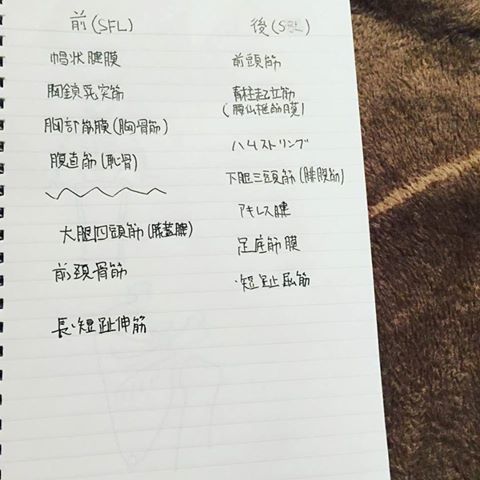 前(SFL)
帽状腱膜
胸鎖乳突筋
胸部筋膜(胸骨筋)
腹直筋(恥骨)
大胆四頭筋(膝蓋腱)
前頚骨筋
長・短趾伸筋
後(SBL)
前頭筋
脊柱起立筋
(腰仙椎筋膜)
ハムストリング
下胆三頭筋(腓腹筋)
アキレス腱
足底筋膜
・短趾屈筋